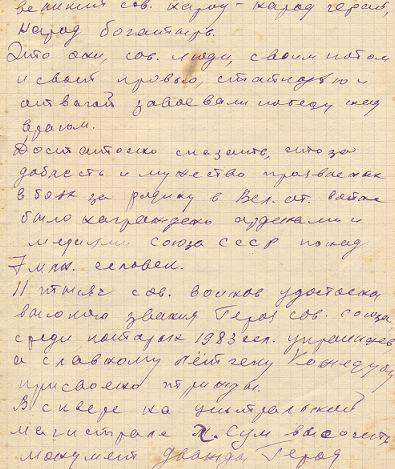 великий сов. народ - народ герой,
народ богатырь.
Это они, сов. люди, своим потом
и своей кровью, стойкостью и
отвагой завоевали победу над
врагом.
Достаточно сказать, что за
доблесть и мужество проявленные
в боях за родину в Вел. от. войне
было награждено орденами и
медалями Союза СССР понад
7 млн. человек.
11 тысяч сов. воинов удостоены
высокого звания Героя сов. союза,
среди которых 1983 чел. украинцев,
а славному лётчику Кожедубу
присвоено трижды.
В сквере на центральной
магистрале г. Сум высочить
монумент дважды Героя